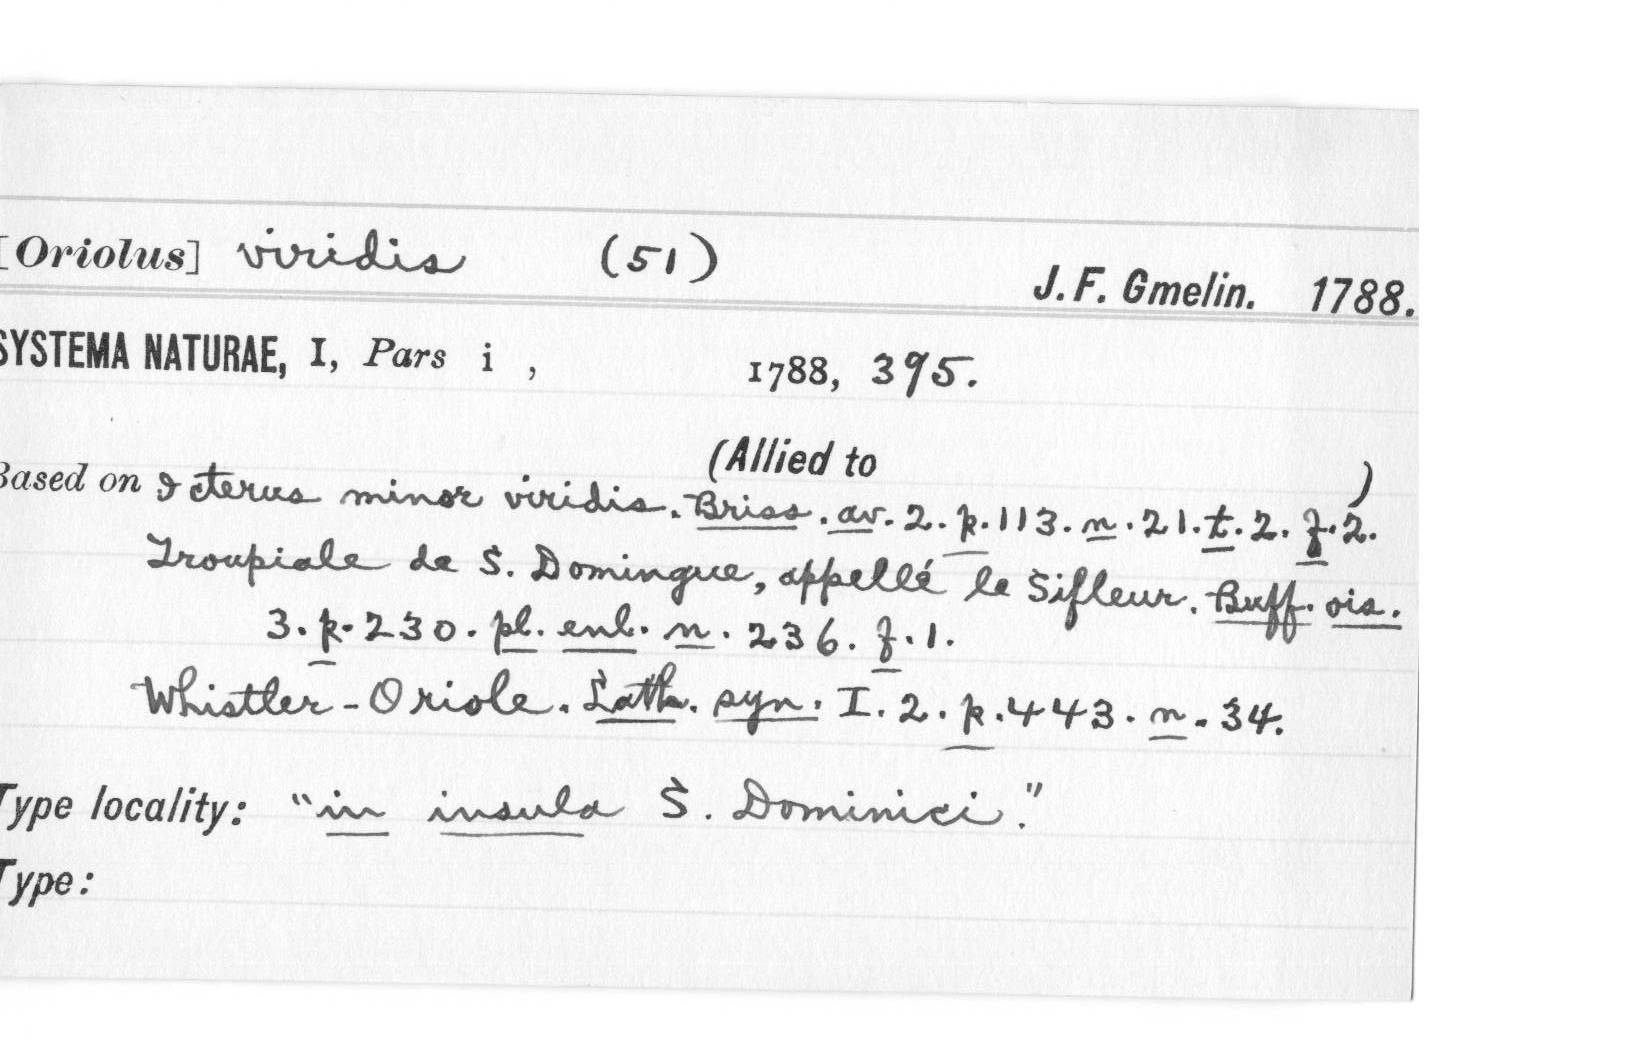 [Oriolus] viridis (51) J. F. Gmelin. 1788.
SYSTEMA NATURAE, I, Pars i , 1788, 395.
(Allied to )
Based on Icterus minor viridis. Briss. av. 2. p. 113. n. 21. t. 2. f. 2.
Troupiale de S. Domingue, appellé le Sifleur. Buff. ois.
3. p. 230. pl. enl. n. 236. f. 1.
Whistler-Oriole. Lath. syn. I. 2. p. 443. n. 34.
Type locality: "in insula S. Dominici."
Type: